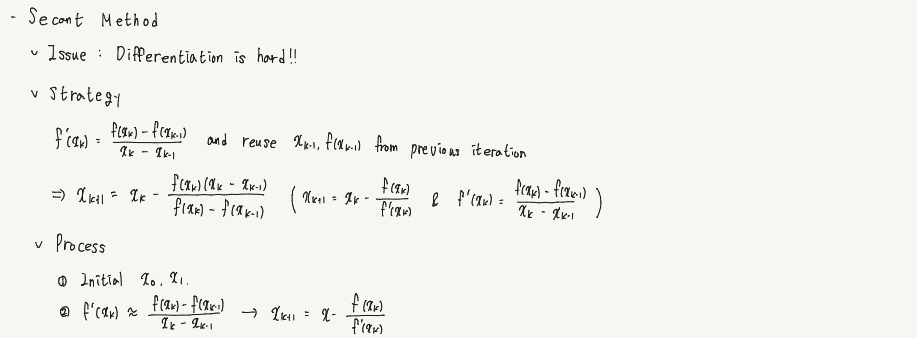 - Secant Method
v Issue : Differentiation is hard!!
v Strategy
f'(x_k) = (f(x_k) - f(x_{k-1})) / (x_k - x_{k-1}) and reuse x_{k-1}, f(x_{k-1}) from previous iteration
⇒ x_{k+1} = x_k - f(x_k)(x_k - x_{k-1}) / (f(x_k) - f(x_{k-1})) ( x_{k+1} = x_k - f(x_k) / f'(x_k) & f'(x_k) = (f(x_k) - f(x_{k-1})) / (x_k - x_{k-1}) )
v Process
① Initial x_0, x_1.
② f'(x_k) ≈ (f(x_k) - f(x_{k-1})) / (x_k - x_{k-1}) → x_{k+1} = x - f(x_k) / f'(x_k)